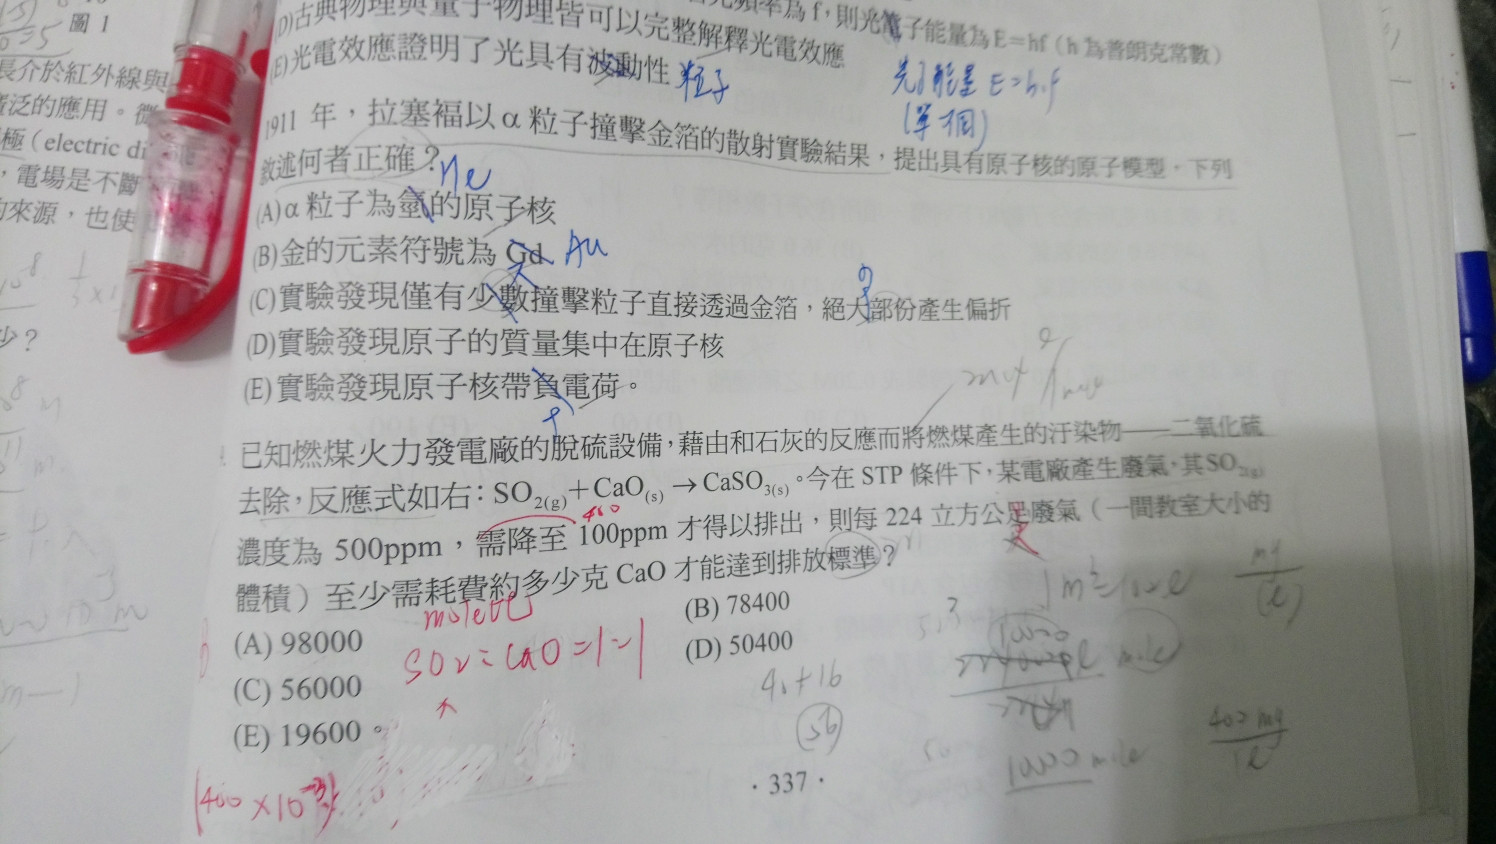 圖 1
長介於紅外線與
泛的應用。微
極（electric di
，電場是不斷
的來源，也使
少？
為 f，則光電子能量為 E=hf（h 為普朗克常數）
(D)古典物理與量子物理皆可以完整解釋光電效應
(E)光電效應證明了光具有波動性 粒子
光子能量 E=h.f
(單個)
1911 年，拉塞福以 α 粒子撞擊金箔的散射實驗結果，提出具有原子核的原子模型，下列
敘述何者正確？
He
(A)α 粒子為氫的原子核
(B)金的元素符號為 Gd Au
(C)實驗發現僅有少數撞擊粒子直接透過金箔，絕大部份產生偏折
(D)實驗發現原子的質量集中在原子核
(E)實驗發現原子核帶負電荷。
已知燃煤火力發電廠的脫硫設備，藉由和石灰的反應而將燃煤產生的汙染物——二氧化硫
去除，反應式如右：SO2(g)＋CaO(s) → CaSO3(s)。今在 STP 條件下，某電廠產生廢氣，其SO2(g)
400
濃度為 500ppm，需降至 100ppm 才得以排出，則每 224 立方公尺廢氣（一間教室大小的
體積）至少需耗費約多少克 CaO 才能達到排放標準？
(A) 98000
(B) 78400
(C) 56000
(D) 50400
(E) 19600。
mole比
SO2 = CaO = 1 = 1
40+16
56
10000 mole
400 mg
1l
400 × 10
· 337 ·